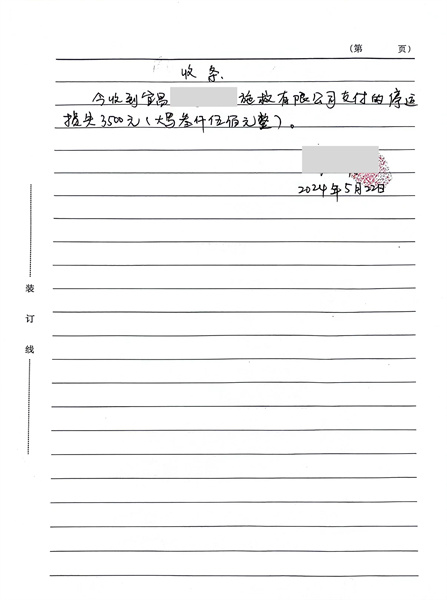 (第 页)
收条.
今收到宜昌 施救有限公司支付的停运
损失3500元(大写叁仟伍佰元整)。
2024年5月22日
装
订
线